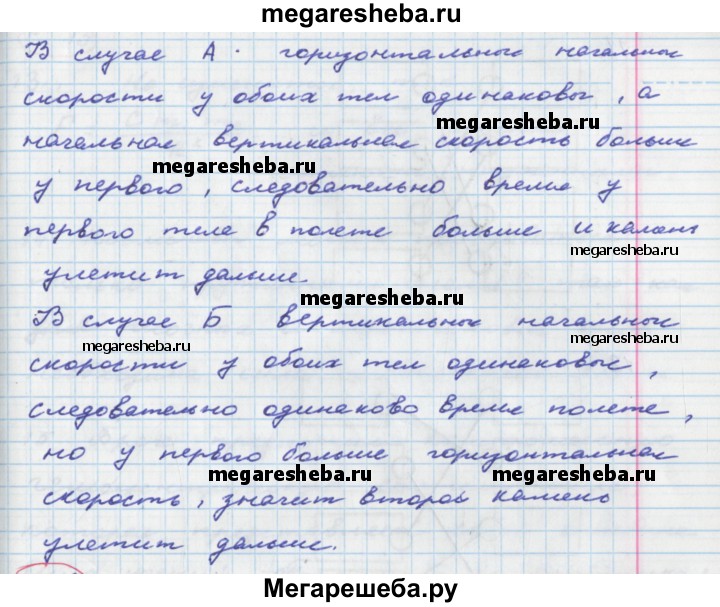 megaresheba.ru
В случае А. горизонтальные начальные
скорости у обоих тел одинаковы, а
megaresheba.ru
начальная вертикальная скорость больше
megaresheba.ru
у первого, следовательно время у
первого тела в полете больше и камень
megaresheba.ru
улетит дальше.
megaresheba.ru
В случае Б вертикальные начальные
megaresheba.ru
скорости у обоих тел одинаковые,
следовательно одинаково время полета,
но у первого больше горизонтальная
megaresheba.ru megaresheba.ru
скорость, значит второй камень
улетит дальше.
Мегарешеба.ру